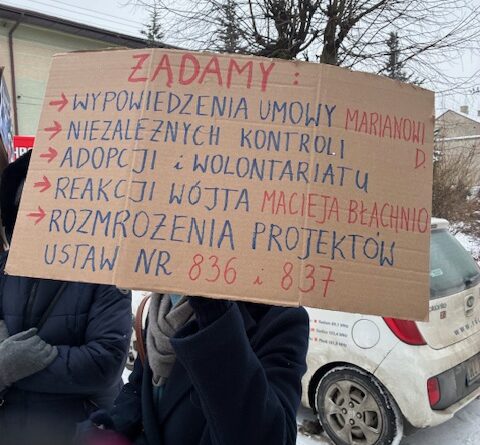 ŻĄDAMY:
→ WYPOWIEDZENIA UMOWY MARIANOWI D.
→ NIEZALEŻNYCH KONTROLI
→ ADOPCJI i WOLONTARIATU
→ REAKCJI WÓJTA MACIEJA BŁACHNIO
→ ROZMROŻENIA PROJEKTÓW
USTAW NR 836 i 837